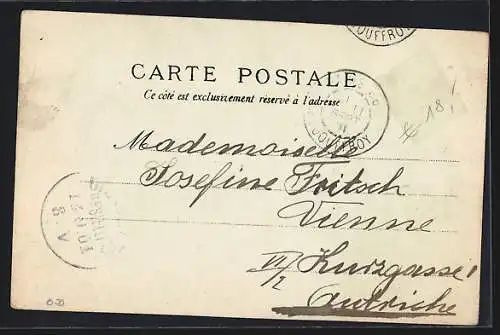 CARTE POSTALE
Ce côté est exclusivement réservé à l'adresse
18
Mademoiselle
Josefine Fritsch
Vienne
VI/2 Kurzgasse 1
Autriche
JOUFFROY